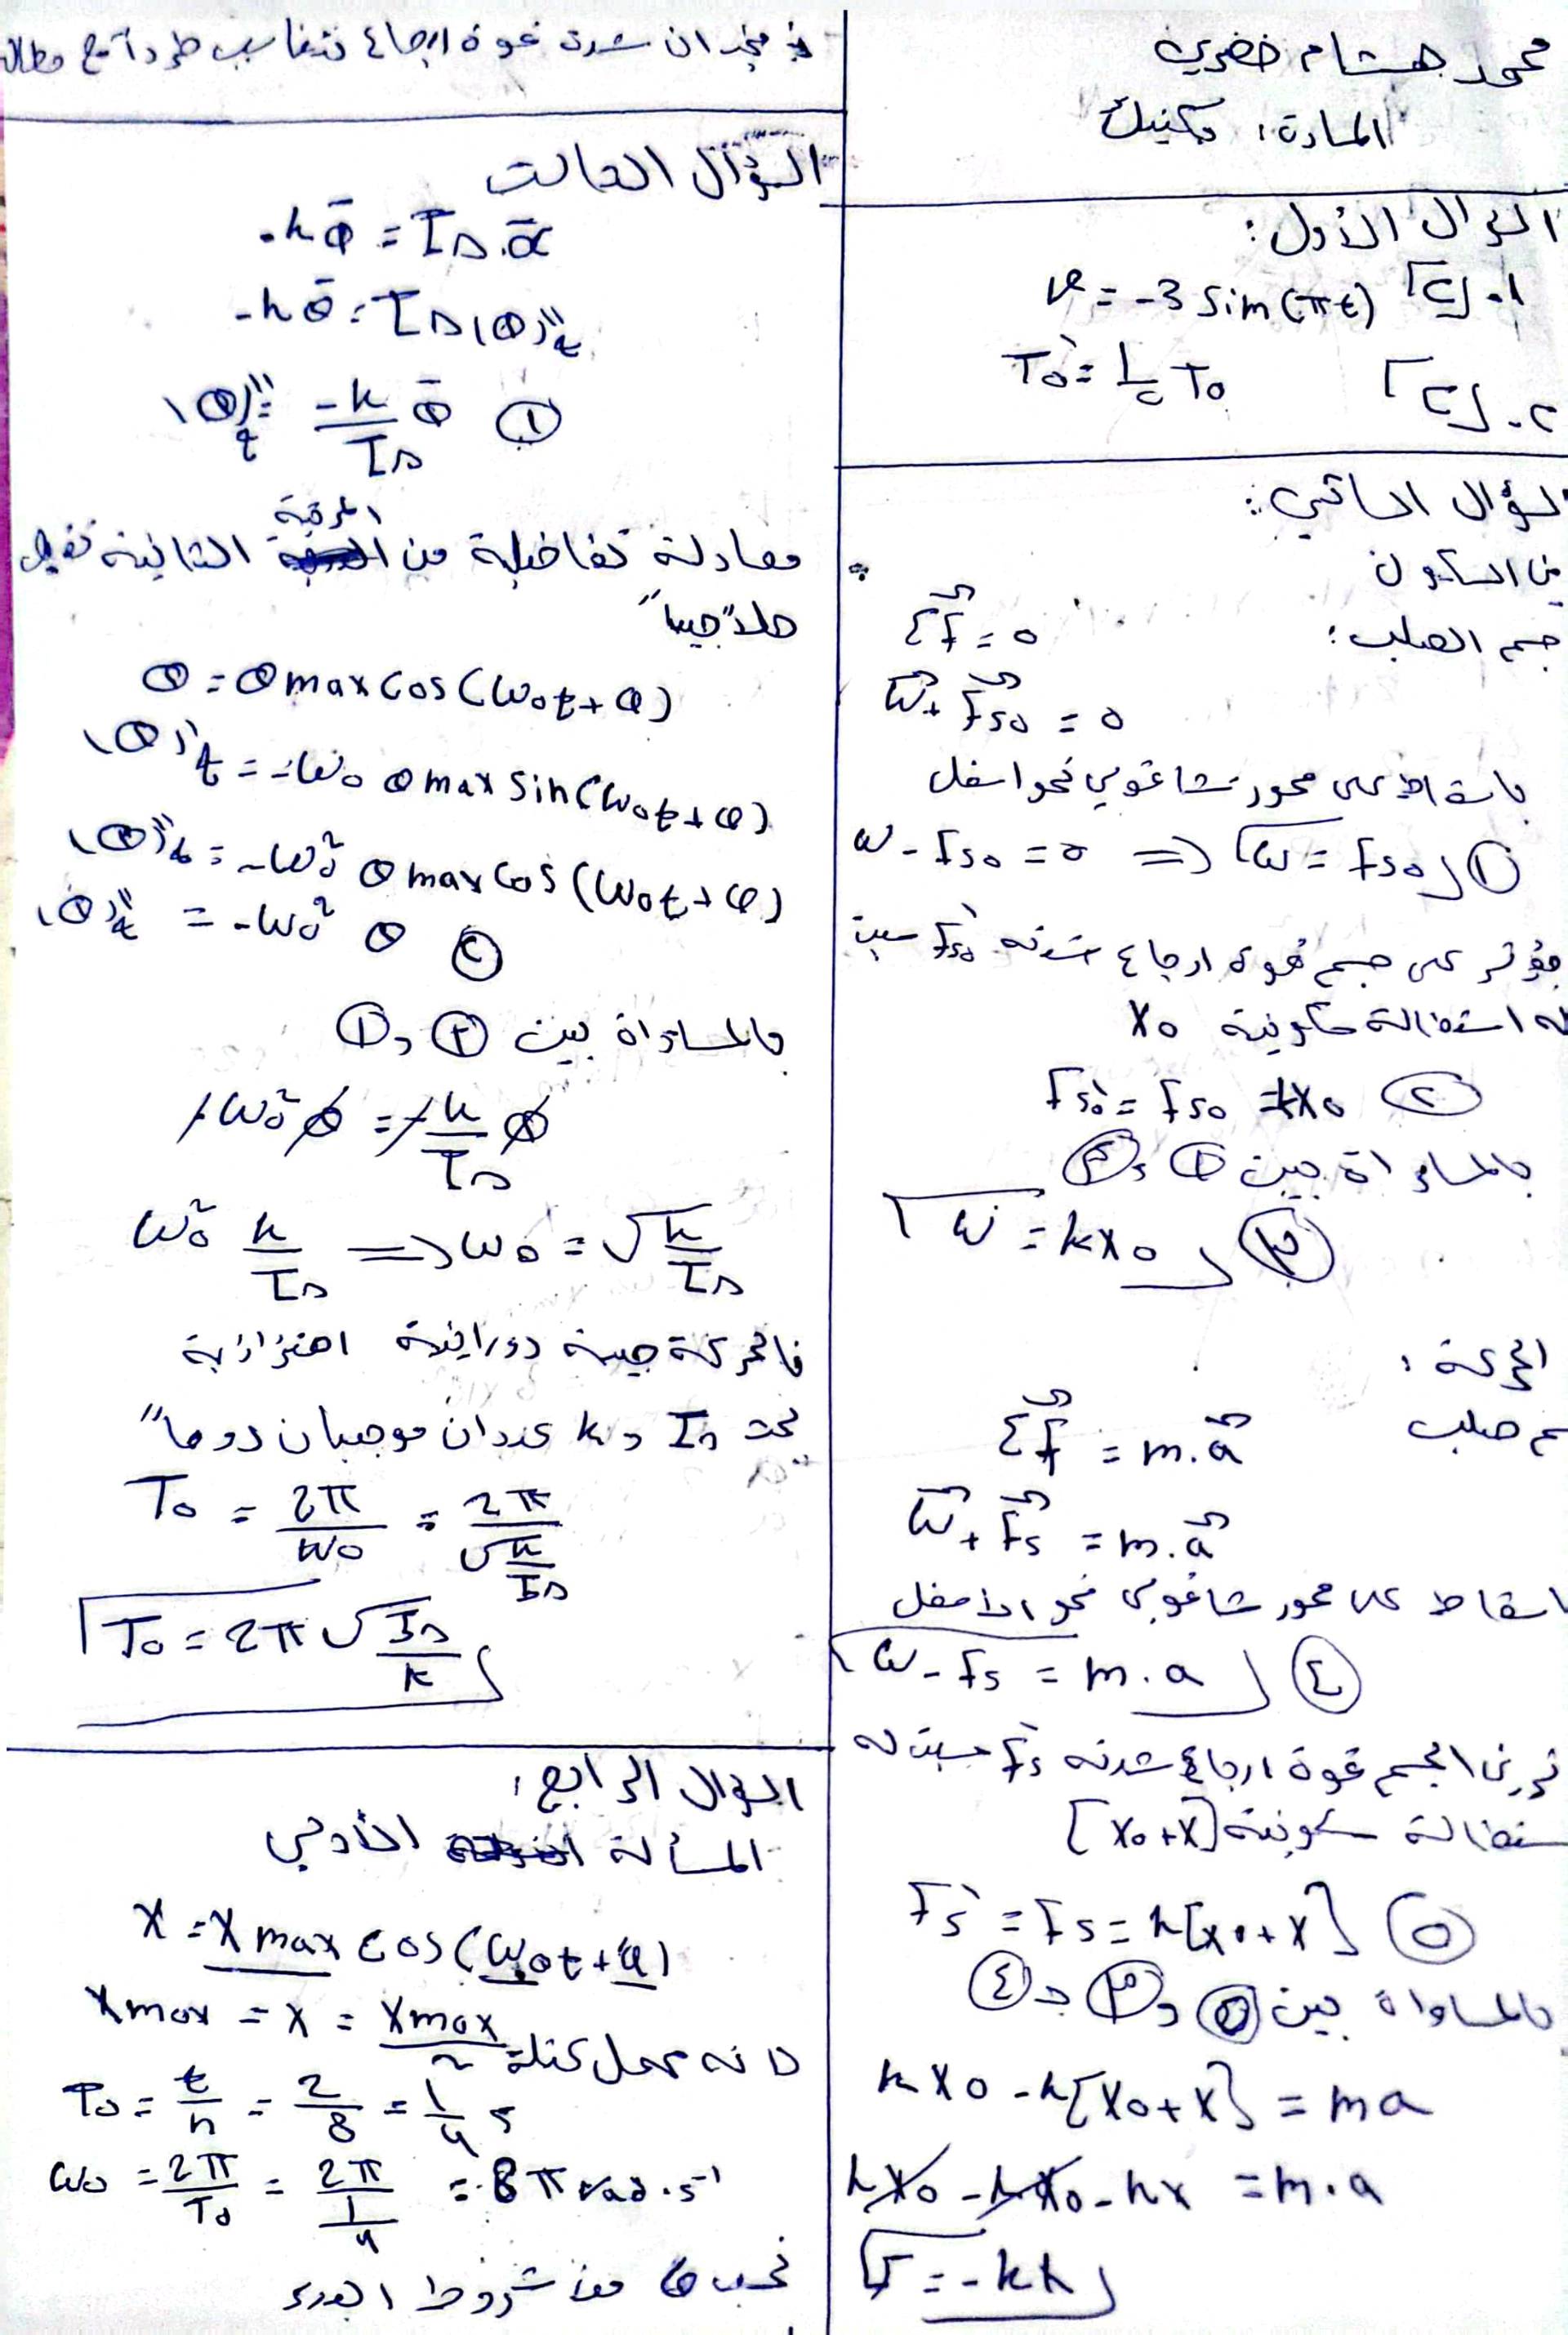 محمد هشام خضري
المادة: مكنيك
السؤال الأول:
1. [ج] v = -3 sin(πt)
٢. [ج] T₀' = 1/٢ T₀
السؤال الثاني:
من السكون
جسم الصلب:
Σf⃗ = 0
w⃗ + f⃗s₀ = 0
باسقاط على محور شاقولي نحو اسفل
w - fs₀ = 0 ⇒ w = fs₀ ①
يؤثر على جسم قوة ارجاع شدته fs₀' سبب
له استطالة سكونية x₀
fs₀' = fs₀ = kx₀ ②
بالمساواة بين ① و ②
w = kx₀ ③
الحركة:
جسم صلب
Σf⃗ = m.a⃗
w⃗ + f⃗s = m.a⃗
باسقاط على محور شاقولي نحو الاسفل
w - fs = m.a ④
قوة ارجاع شدته fs' سبب له
استطالة سكونية [x₀+x]
fs' = fs = k[x₀+x] ⑤
بالمساواة بين ⑤ و ③ و ④
kx₀ - k[x₀+x] = ma
kx₀ - kx₀ - kx = m.a
F = -kx
نجد ان شدة قوة ارجاع تتناسب طرداً مع مطال
السؤال الثالث
-kθ̄ = I∆.ᾱ
-kθ̄ = I∆(θ)''t
(θ)''t = -k/I∆ θ̄ ①
معادلة تفاضلية من المرتبة الثانية تقبل
حلاً جيبياً
θ = θmax cos(ω₀t + φ)
(θ)'t = -ω₀ θmax sin(ω₀t + φ)
(θ)''t = -ω₀² θmax cos(ω₀t + φ)
(θ)''t = -ω₀² θ ②
بالمساواة بين ② و ①
-ω₀² θ = -k/I∆ θ
ω₀² k/I∆ ⇒ ω₀ = √(k/I∆)
فالحركة جيبية دورانية اهتزازية
I∆ و k عددان موجبان دوماً
T₀ = 2π/ω₀ = 2π/√(k/I∆)
T₀ = 2π √(I∆/k)
السؤال الرابع:
المسألة الأولى
x = xmax cos(ω₀t + φ)
xmax = x = xmax/2
T₀ = t/n = 2/8 = 1/4 s
ω₀ = 2π/T₀ = 2π/(1/4) = 8π rad.s⁻¹
نحسب φ من شروط البدء